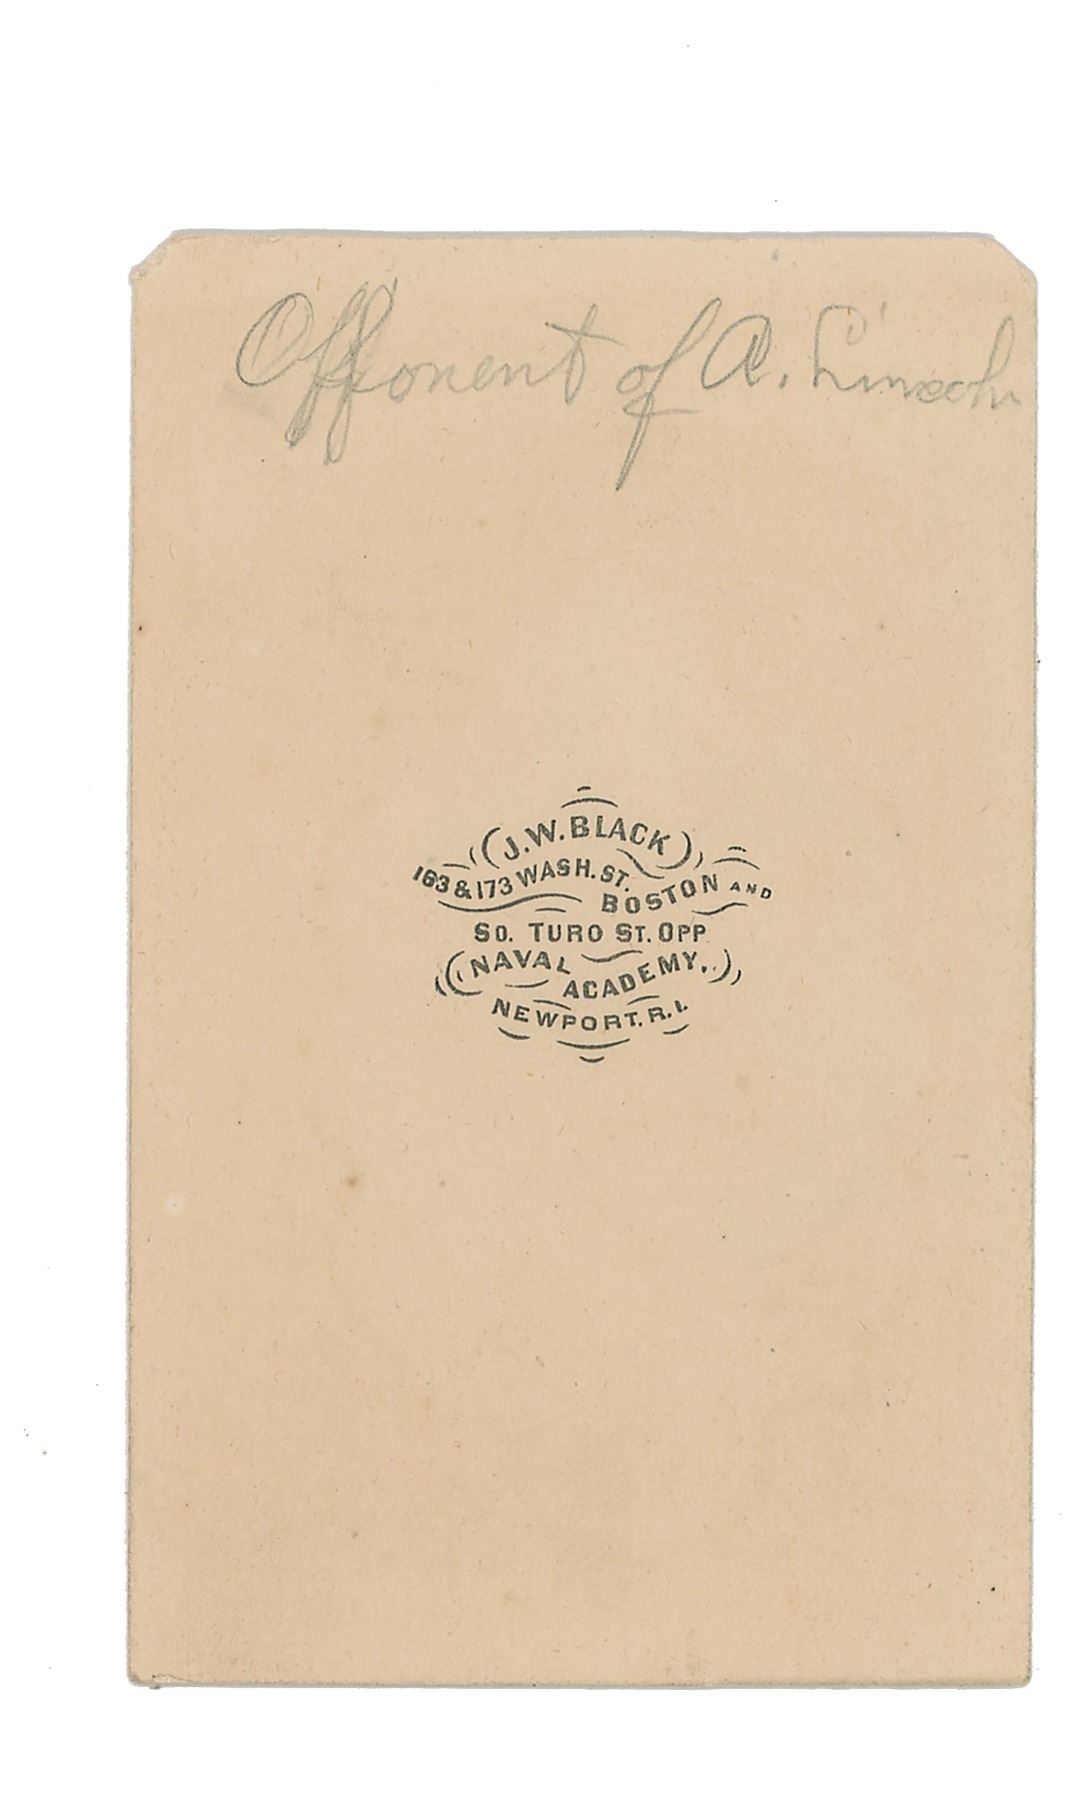 Opponent of A. Lincoln
J. W. BLACK
163 & 173 WASH. ST.
BOSTON AND
SO. TURO ST. OPP
NAVAL
ACADEMY,.
NEWPORT. R. I.